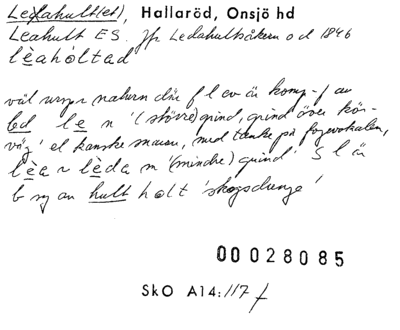 Ledahult(et), Hallaröd, Onsjö hd
Leahult ES. Jfr Ledahultsåkern o d 1846
lèahòltad
väl urspr naturn där f l ev är komp-f av
led le n '(större)grind, grind över kör-
väg' el kanske snarare, med tanke på fogevokalen,
lèa ~ lèda m '(mindre) grind' S l är
b sg av hult holt 'skogsdunge'
00028085
SkO A14:117 f